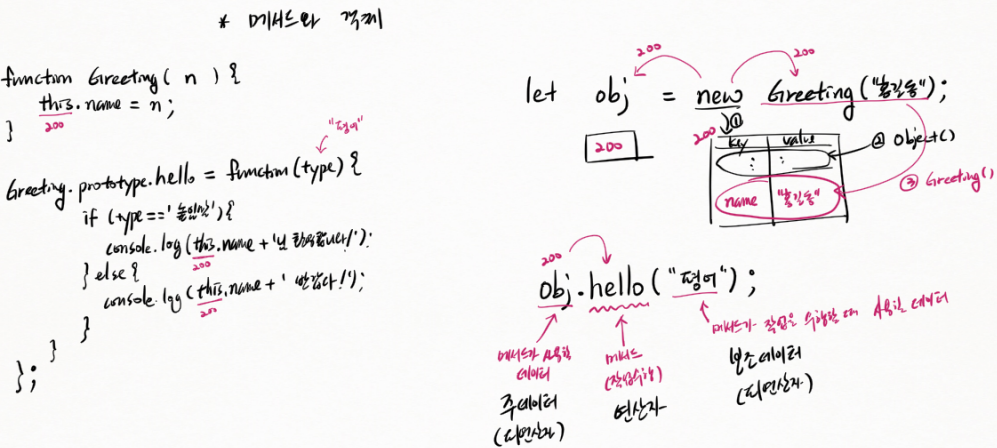 * 메서드와 객체
function Greeting( n ) {
this.name = n;
200
}
"평어"
Greeting.prototype.hello = function(type) {
if (type=='높임말'){
console.log(this.name + '님 환영합니다!');
200
} else {
console.log(this.name + ' 반갑다!');
200
}
}
};
200 200
let obj = new Greeting("홍길동");
200
200 ①
key value
: :
② Object()
name "홍길동"
③ Greeting()
200
obj.hello("평어");
메서드가 사용할
데이터
주데이터
(피연산자)
메서드
(작업수행)
연산자
메서드가 작업을 수행할 때 사용할 데이터
보조데이터
(피연산자)